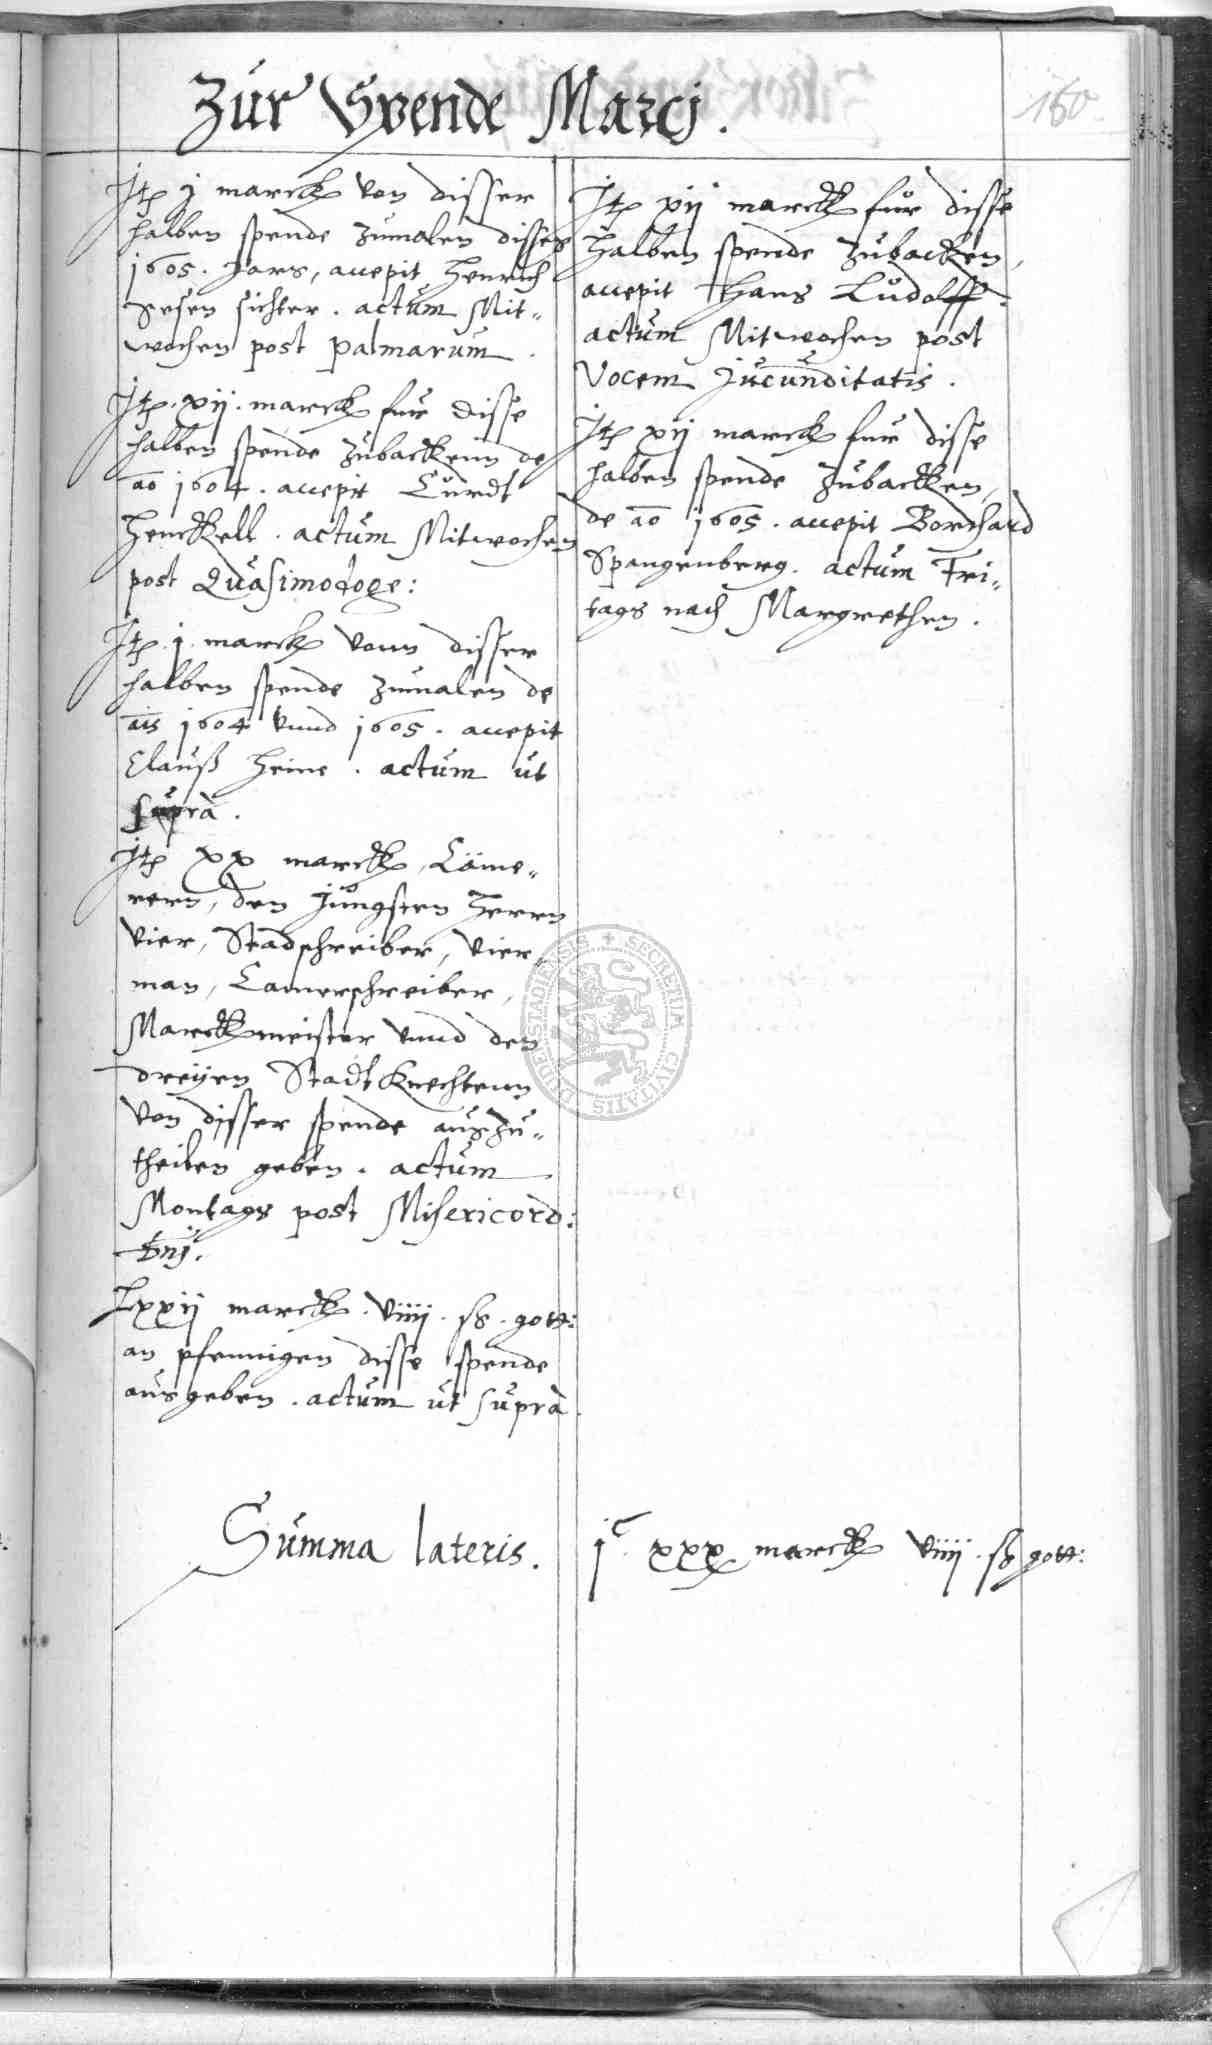 Zur Spende Marcj.
150.
Itꝫ j marck von disser
halben spende zumalen disses
1605. Jars, accepit Henrich
Sesen sichter. actum Mit„
wochen post palmarum.
Itꝫ. xij. marck fur disse
halben spende zubackenn de
ao 1604. accepit Curdt
Henckell. actum Mitwochen
post Quasimodoge:
Itꝫ. j. marck vonn disser
halben spende zumalen de
ais 1604 vnnd 1605. accepit
Clauß Heine. actum ut
suprà.
Itꝫ xx marck, Cäme„
rern, den jungsten Herrn
vier, Stadschreiber, vier„
man, Camerschreiber,
Marckmeister vnnd den
dreÿen Stadt Knechtenn
von disser spende auszu„
theilen geben. actum
Montags post Misericord:
Dnj.
Lxxij marck. viiij. ß. gott:
an pfennigen disse spende
ausgeben. actum ut suprà.
Itꝫ xij marck fur disse
halben spende zubacken,
accepit Hans Ludolff.
actum Mitwochen post
Vocem Jucunditatis.
Itꝫ xij marck fur disse
halben spende zubacken,
de ao 1605. accepit Borchard
Spangenberg. actum Fri„
tags nach Margrethen.
Summa lateris. jc. xxx marck viiij. ß gott:
SECRETUM CIVITATIS DUDERSTADIENSIS